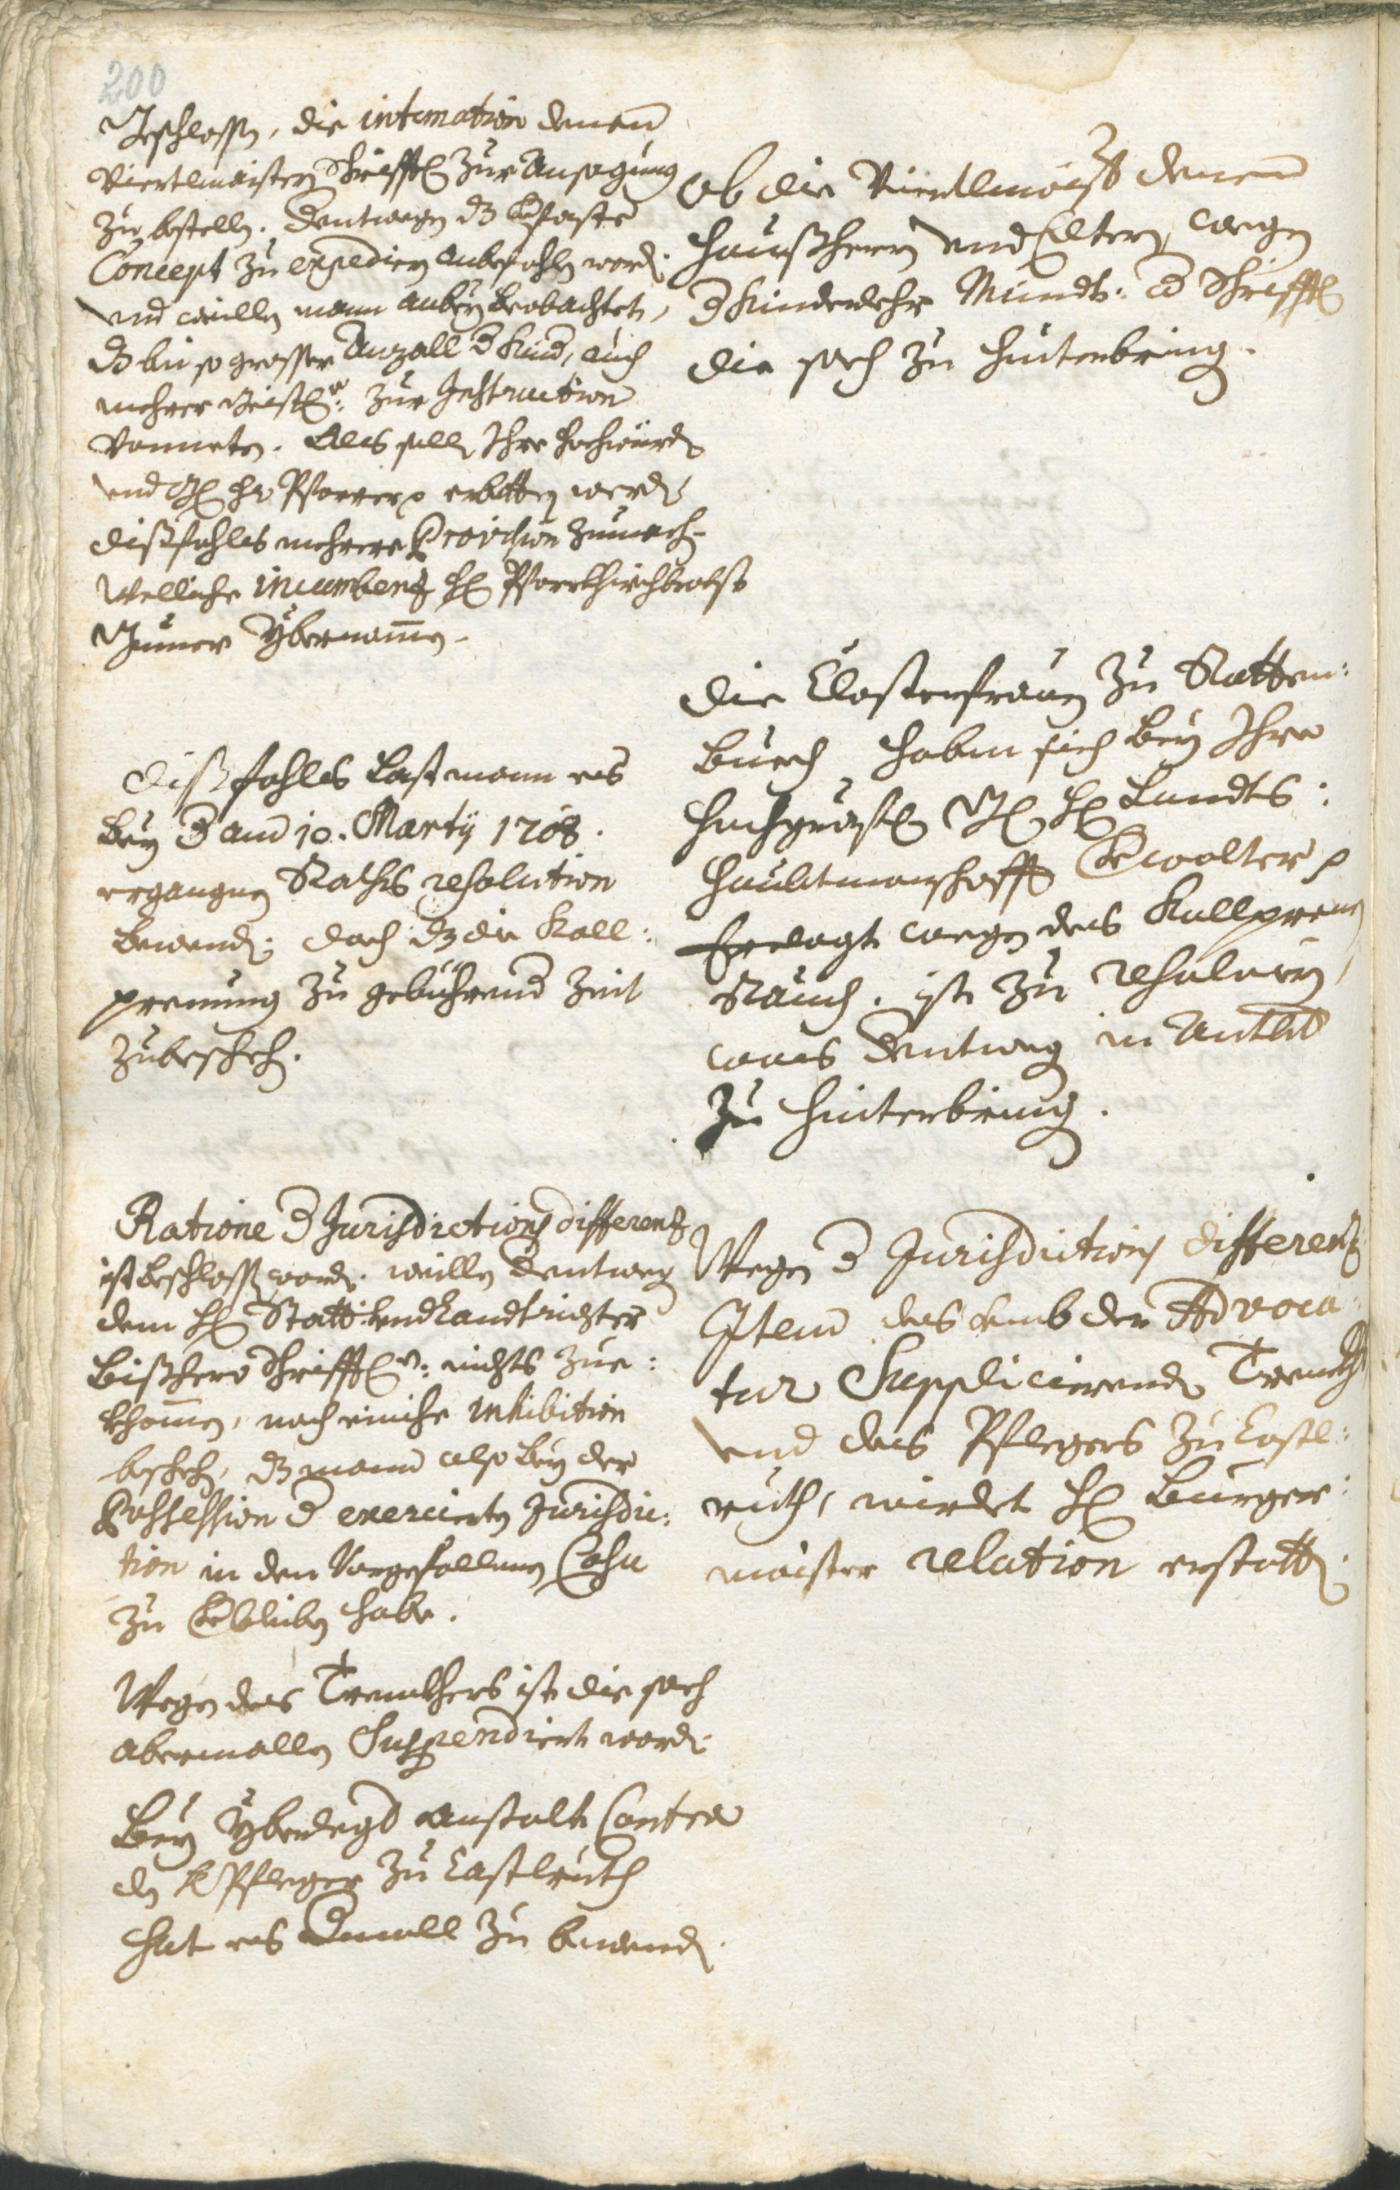 200
Beschlossen, die intimation denen
Viertlmaistern Schrifftl. zur Ansagung
zu bestellen. Dentwegen dz verfaste
Concept zu expediern anbefohlen worden.
und weillen mann anbey beobachtet,
dz bei so grosser Anzall der Kinder, auch
mehrer Geistl.r zur Instruction
vonneten. Als sollen Ihre Hochwürden
und Herr Pfarrer erbetten werden
dissfahls mehrere Provision zumachen
welliche incumbenz H. Pfarrkhirchbrobst
Junner ybernommen.
Ob die Viertlmaister denen
Haussherrn und Eltern, wegen
der Kinderlehr Mündt: oder Schrifftl.
die sach zu hinterbringen.
Dissfahls Last mann es
bey der am 10. Marty 1708.
ergangnen Raths resolution
bewenden. doch dz die Kall:
prennung zu gebührender Zeit
zubeschehen.
Die Closterfrauen zu Ratten:
buech haben sich bey Ihro
Hochgräfl. H. Landts:
Haubtmanschafft Verwalter
beclagt wegen des Kallprenn
Rauch. ist zu resolviern,
was dentwegen in Antwort
zu hinterbringen.
Ratione der Jurisdictions differenz
ist beschlossen worden. weillen dentwegen
dem H. Statt: und Landtrichter
bisshero Schrifftl. nichts zue:
khommen, noch einiche inhibition
beschehen, dz mann also bey der
Possession der exercierten Jurisdic:
tion in dem Vorgefallenen Casu
zu verbleiben habe.
Wegen der Jurisdictions differenz
Item des umb der Advoca:
tur Supplicierenden
und des Pflegers zu Castl:
ruth, wirdet H. Burger:
maister relation erstatten.
Wegen des ist die sach
abermallen Suspendiert worden.
Bey yberlegter anstalt Contra
den H. Pfleger zu Castlruth
hat es Dermall zu bewenden.